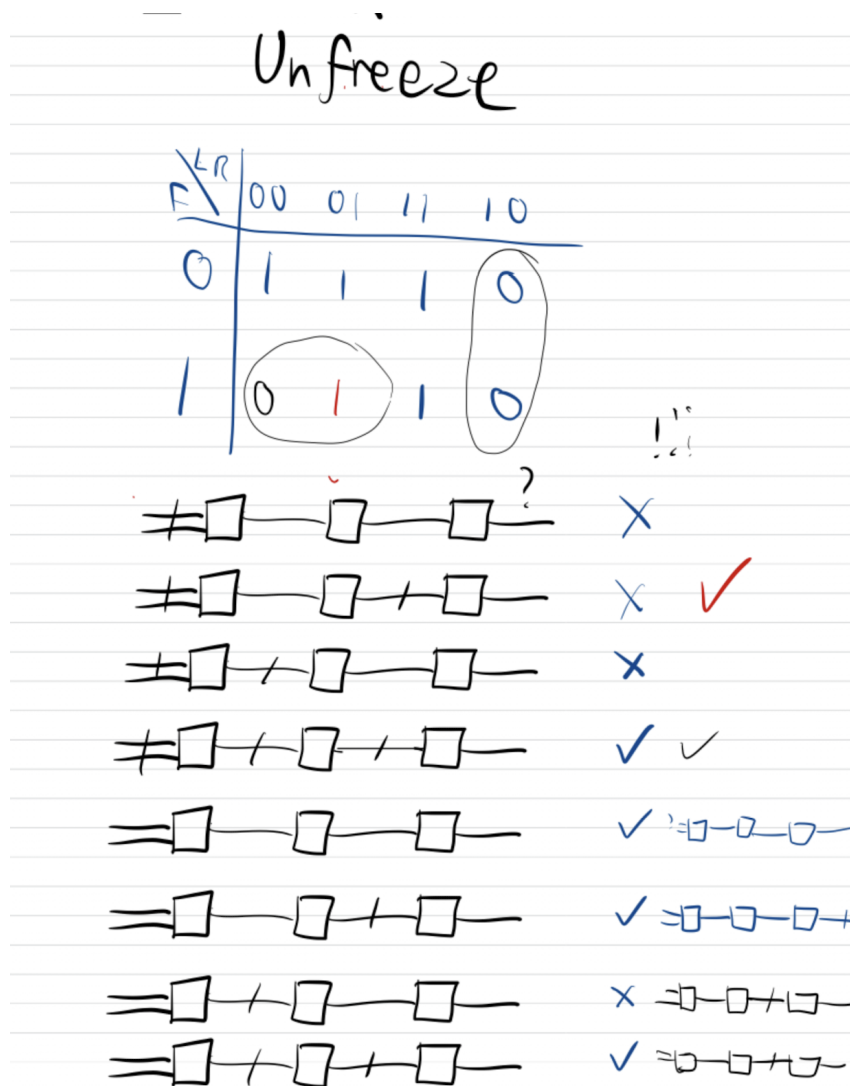 Unfreeze
LR
F
00 01 11 10
0 1 1 1 0
1 0 1 1 0
?